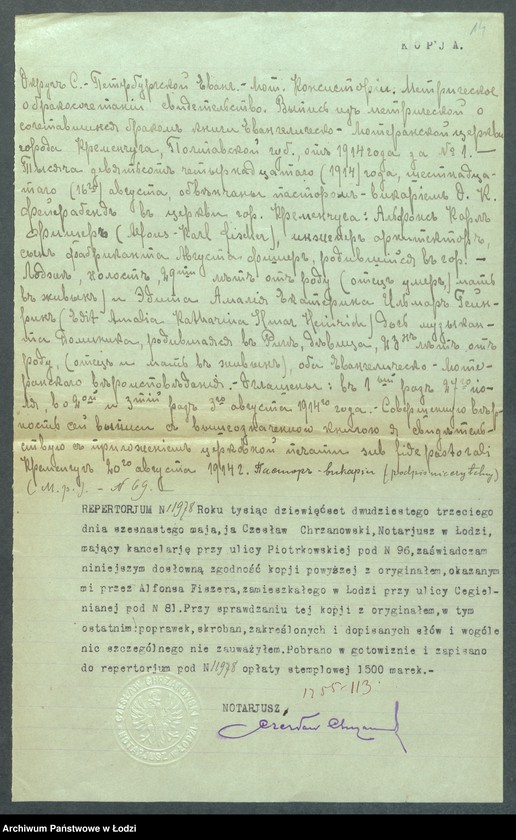 14
KOPJA.
Округъ С.-Петербургской Еванг.-Лют. Консисторіи. Метрическое
о бракосочетаніи свидѣтельство. Выпись изъ метрической о
сочетавшихся бракомъ книги Евангелическо-Лютеранской церкви
города Кременчуга, Полтавской губ., отъ 1914 года за № 1.
Тысяча девятьсотъ четырнадцатаго (1914) года, шестнадца-
таго (16го) августа, обвѣнчаны пасторомъ-викаріемъ
въ церкви гор. Кременчуга: Альфонсъ Карлъ
Фишеръ (Alfons-Karl Fischer), инженеръ архитекторъ,
сынъ фабриканта Августа Фишеръ, родившійся въ гор.
Лодзи, холостъ, лѣтъ отъ роду (отецъ умеръ, мать
въ живыхъ) и Эдита Амалія Екатерина Ильмаръ Гейн-
рихъ (Edit Amalia Katharina Ilmar Heinrich) дочь музыкан-
та родившаяся въ Ригѣ, дѣвица, лѣтъ отъ
роду, (отецъ и мать въ живыхъ), оба Евангелическо-Люте-
ранскаго вѣроисповѣданія. Оглашены: въ 1ый разъ 27го ію-
ля, въ 2ой и 3тій разъ 3го августа 1914го года. Совершенную вѣр-
ность сей выписи съ вышеозначенною книгою я свидѣтель-
ствую съ приложеніемъ церковной печати sub fide pastorali
Кременчугъ 20го августа 1914 г. Пасторъ-викарій (podpis nieczytelny)
(M.p.). - № 69.
REPERTORJUM N 11978 Roku tysiąc dziewięćset dwudziestego trzeciego
dnia szesnastego maja, ja Czesław Chrzanowski, Notarjusz w Łodzi,
mający kancelarję przy ulicy Piotrkowskiej pod N 96, zaświadczam
niniejszym dosłowną zgodność kopji powyższej z oryginałem, okazanym
mi przez Alfonsa Fiszera, zamieszkałego w Łodzi przy ulicy Cegiel-
nianej pod N 81. Przy sprawdzaniu tej kopji z oryginałem, w tym
ostatnim: poprawek, skroban, zakreślonych i dopisanych słów i wogóle
nic szczególnego nie zauważyłem. Pobrano w gotowiźnie i zapisano
do repertorjum pod N 11978 opłaty stemplowej 1500 marek.-
NOTARJUSZ
Czesław Chrzanowski
Archiwum Państwowe w Łodzi
szukajwarchiwach.gov.pl